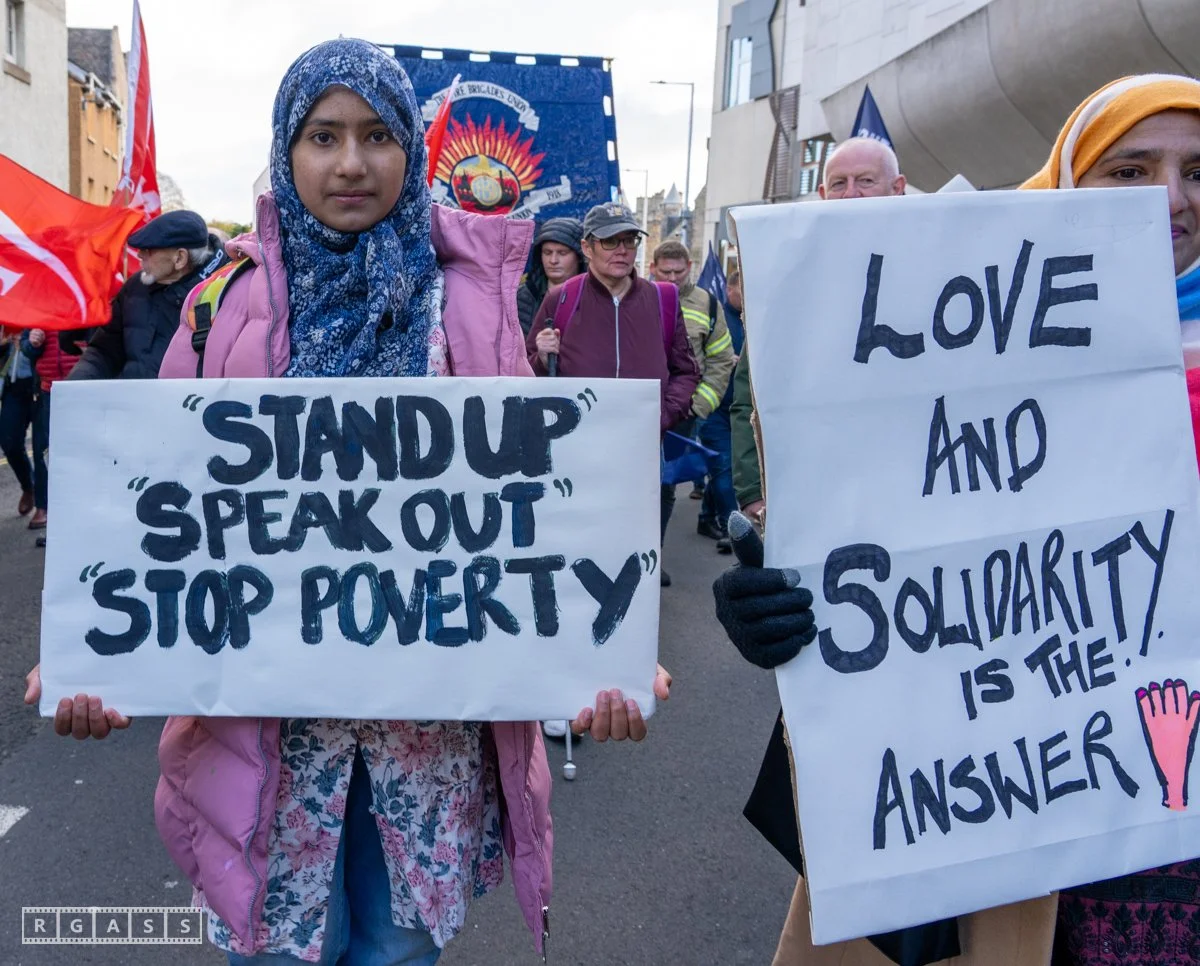 THE FIRE BRIGADES UNION
1918
"STAND UP"
"SPEAK OUT"
"STOP POVERTY"
LOVE
AND
SOLIDARITY
IS THE
ANSWER
RGASS